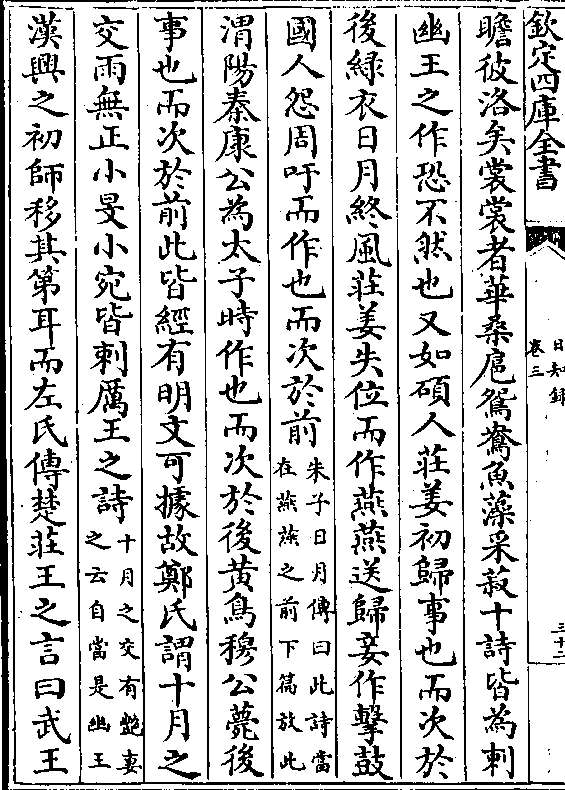 欽定四庫全書
日知錄
卷三
三十二
瞻彼洛矣裳裳者華桑扈鴛鴦魚藻采菽十詩皆為刺
幽王之作恐不然也又如碩人莊姜初歸事也而次於
後緑衣日月終風莊姜失位而作燕燕送歸妾作擊鼓
國人怨周吁而作也而次於前朱子日月傳曰此詩當在燕燕之前下篇放此
渭陽秦康公為太子時作也而次於後黄鳥穆公薨後
事也而次於前此皆經有明文可據故鄭氏謂十月之
交雨無正小旻小宛皆刺厲王之詩十月之交有艷妻之云自當是幽王
漢興之初師移其第耳而左氏傳楚莊王之言曰武王